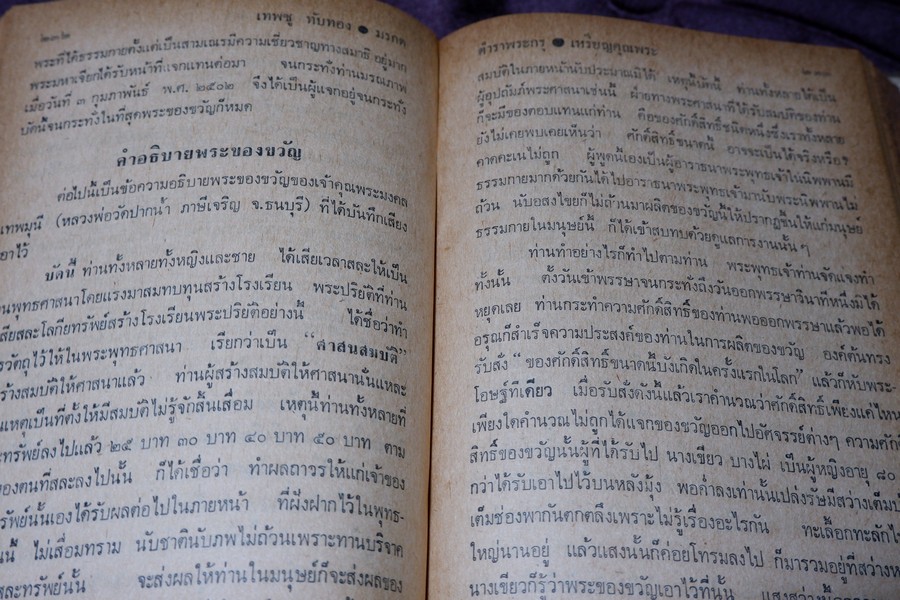 ๒๓๒
เทพชู ทับทอง ● มรกต
พระที่ได้ธรรมกายตั้งแต่เป็นสามเณรมีความเชี่ยวชาญทางสมาธิ อยู่มาก
พระมหาเจียกได้รับหน้าที่แจกแทนต่อมา จนกระทั่งท่านมรณภาพ
เมื่อวันที่ ๓ กุมภาพันธ์ พ.ศ. ๒๕๐๒ จึงได้เป็นผู้แจกอยู่จนกระทั่ง
บัดนี้จนกระทั่งในที่สุดพระของขวัญก็หมด
คำอธิบายพระของขวัญ
ต่อไปนี้เป็นข้อความอธิบายพระของขวัญของเจ้าคุณพระมงคล
เทพมุนี (หลวงพ่อวัดปากน้ำ ภาษีเจริญ จ.ธนบุรี) ที่ได้บันทึกเสียง
เอาไว้
บัดนี้ ท่านทั้งหลายทั้งหญิงและชาย ได้เสียเวลาสละให้เป็น
นพุทธศาสนาโดยแรงมาสมทบทุนสร้างโรงเรียน พระปริยัติที่ท่าน
เสียสละโลกียทรัพย์สร้างโรงเรียนพระปริยัติอย่างนี้ ได้ชื่อว่าทำ
รวัตถุไว้ให้ในพระพุทธศาสนา เรียกว่าเป็น “ศาสนสมบัติ”
ร้างสมบัติให้ศาสนาแล้ว ท่านผู้สร้างสมบัติให้ศาสนานั่นแหละ
นเหตุเป็นที่ตั้งให้มีสมบัติไม่รู้จักสิ้นเสื่อม เหตุนี้ท่านทั้งหลายที่
ะทรัพย์ลงไปแล้ว ๒๕ บาท ๓๐ บาท ๔๐ บาท ๕๐ บาท ตาม
ของตนที่สละลงไปนั้น ก็ได้ชื่อว่า ทำผลถาวรให้แก่เจ้าของ
รัพย์นั้นเองได้รับผลต่อไปในภายหน้า ที่ฝังฝากไว้ในพุทธ-
นี้ ไม่เสื่อมทราม นับชาตินับภพไม่ถ้วนเพราะทานบริจาค
สละทรัพย์นั้น จะส่งผลให้ท่านในมนุษย์ก็จะส่งผลของ
ตำราพระกรุ ● เหรียญคุณพระ
สมบัติในภายหน้านับประมาณมิได้ เหตุนี้บัดนี้ ท่านทั้งหลายได้เป็น
ผู้อุปถัมภ์พระศาสนาเช่นนี้ ฝ่ายทางพระศาสนาที่ได้รับสมบัติของท่าน
ก็จะมีของตอบแทนแก่ท่าน คือของศักดิ์สิทธิ์ชนิดหนึ่งซึ่งเราทั้งหลาย
ยังไม่เคยพบเคยเห็นว่า ศักดิ์สิทธิ์ขนาดนี้ อาจจะเป็นได้จริงหรือ?
คาดคะเนไม่ถูก ผู้พูดนี้เองเป็นผู้อาราธนาพระพุทธเจ้าในนิพพานมี
ธรรมกายมากด้วยกันได้ไปอาราธนาพระพุทธเจ้ามานับพระนิพพานไม่
ถ้วน นับอสงไขยก็ไม่ถ้วนมาผลิตของขวัญนี้ให้ปรากฏขึ้นให้แก่มนุษย์
ธรรมกายในมนุษย์นี้ ก็ได้เข้าสบทบด้วยดูแลการงานนั้น ๆ
ท่านทำอย่างไรก็ทำไปตามท่าน พระพุทธเจ้าท่านจัดแจงทำ
ทั้งนั้น ตั้งวันเข้าพรรษาจนกระทั่งถึงวันออกพรรษาวินาทีหนึ่งมิได้
หยุดเลย ท่านกระทำความศักดิ์สิทธิ์ของท่านพอออกพรรษาแล้วพอได้
อรุณก็สำเร็จความประสงค์ของท่านในการผลิตของขวัญ องค์ต้นทรง
รับสั่ง “ของศักดิ์สิทธิ์ขนาดนี้บังเกิดในครั้งแรกในโลก” แล้วก็หับพระ-
โอษฐ์ทีเดียว เมื่อรับสั่งดังนี้แล้วเราคำนวณว่าศักดิ์สิทธิ์เพียงแค่ไหน
เพียงใดคำนวณไม่ถูกได้แจกของขวัญออกไปอัศจรรย์ต่างๆ ความศักดิ์
สิทธิ์ของขวัญนั้นผู้ที่ได้รับไป นางเขียว บางไผ่ เป็นผู้หญิงอายุ ๘๐
กว่าได้รับเอาไปไว้บนหลังมุ้ง พอค่ำลงเท่านั้นเปล่งรัษมีสว่างเต็มบ้
เต็มช่องพากันตกตลึงเพราะไม่รู้เรื่องอะไรกัน ทะเลือกทะลักไ
ใหญ่นานอยู่ แล้วแสงนั้นก็ค่อยโทรมลงไป ก็มารวมอยู่ที่สว่างห
นางเขียวก็รู้ว่าพระของขวัญเอาไว้ที่นั้น